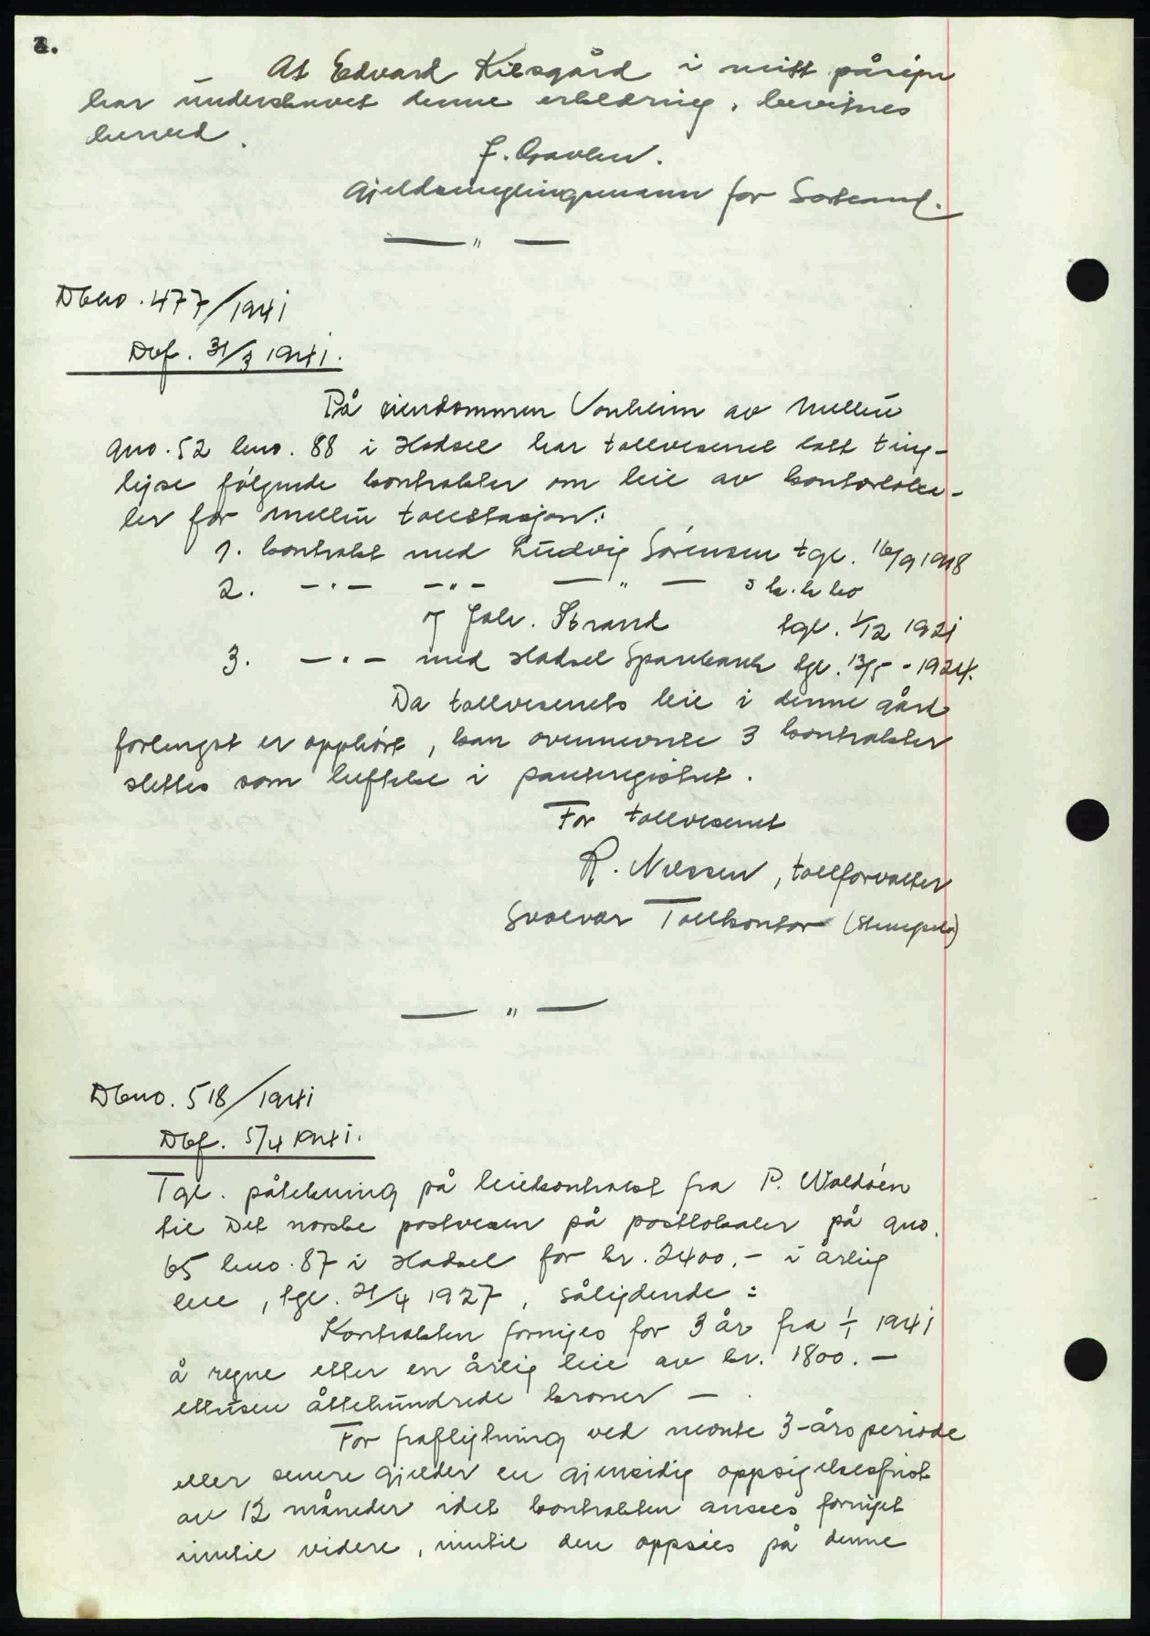 2.
At Edvard Kilsgård i mitt påsyn
har underskrevet denne erklæring, bevitnes
herved.
J. Gavlen.
Gjeldsmeglingsmann for Sortland.
— " —
Dbno. 477/1941
Dbf. 31/3 1941.
På eiendommen Vonheim av Melbu
gno. 52 bno. 88 i Hadsel har tollvesenet latt ting-
lyse følgende kontrakter om leie av kontorloka-
ler for Melbu tollstasjon:
1. kontrakt med Ludvig Sørensen tgl. 16/9 1918
2. — " — — " — — " — s k.k bo
og Joh. Strand tgl. 1/12 1921
3. — " — med Hadsel Sparebank tgl. 13/5 - 1924.
Da tollvesenets leie i denne gård
forlengst er opphört, kan ovennevnte 3 kontrakter
slettes som heftelse i panteregistret.
For tollvesenet
R. Nilssen, tollforvalter
Svolvær Tollkontor (Stempel)
— " —
Dbno. 518/1941
Dbf. 5/4 1941.
Tgl. påtekning på leiekontrakt fra P. Waldöen
til Det norske postvesen på postlokaler på gno.
65 bno. 87 i Hadsel for kr. 2400,- i årlig
leie, tgl. 21/4 1927, sålydende:
Kontrakten fornyes for 3 år fra 1/1 1941
å regne etter en årlig leie av kr. 1800.—
ettusen åttehundrede kroner —.
For fraflytning ved neste 3-årsperiode
eller senere gjelder en gjensidig oppsigelsesfrist
av 12 måneder idet kontrakten ansees fornyet
inntil videre, inntil den oppsies på denne